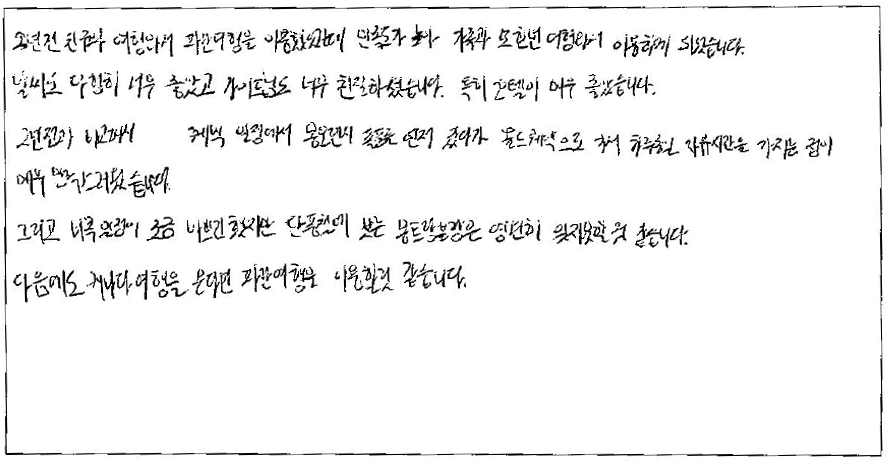 2년전 친구와 여행와서 파란여행을 이용했었는데 만족도가 높아 가족과 또한번 여행와서 이용하게 되었습니다.
날씨도 다행히 너무 좋았고 가이드님도 너무 친절하셨습니다. 특히 호텔이 매우 좋았습니다.
2년전과 비교해서 퀘벡 일정에서 몽모렌시 폭포를 먼저 갔다가 올드퀘벡으로 가서 하루종일 자유시간을 가지는 점이
매우 만족스러웠습니다.
그리고 비록 일정이 조금 바쁘긴 했지만 단풍철에 찾는 몽트랑블랑은 영원히 잊지못할것 같습니다.
다음에도 캐나다여행을 온다면 파란여행을 이용할것 같습니다.